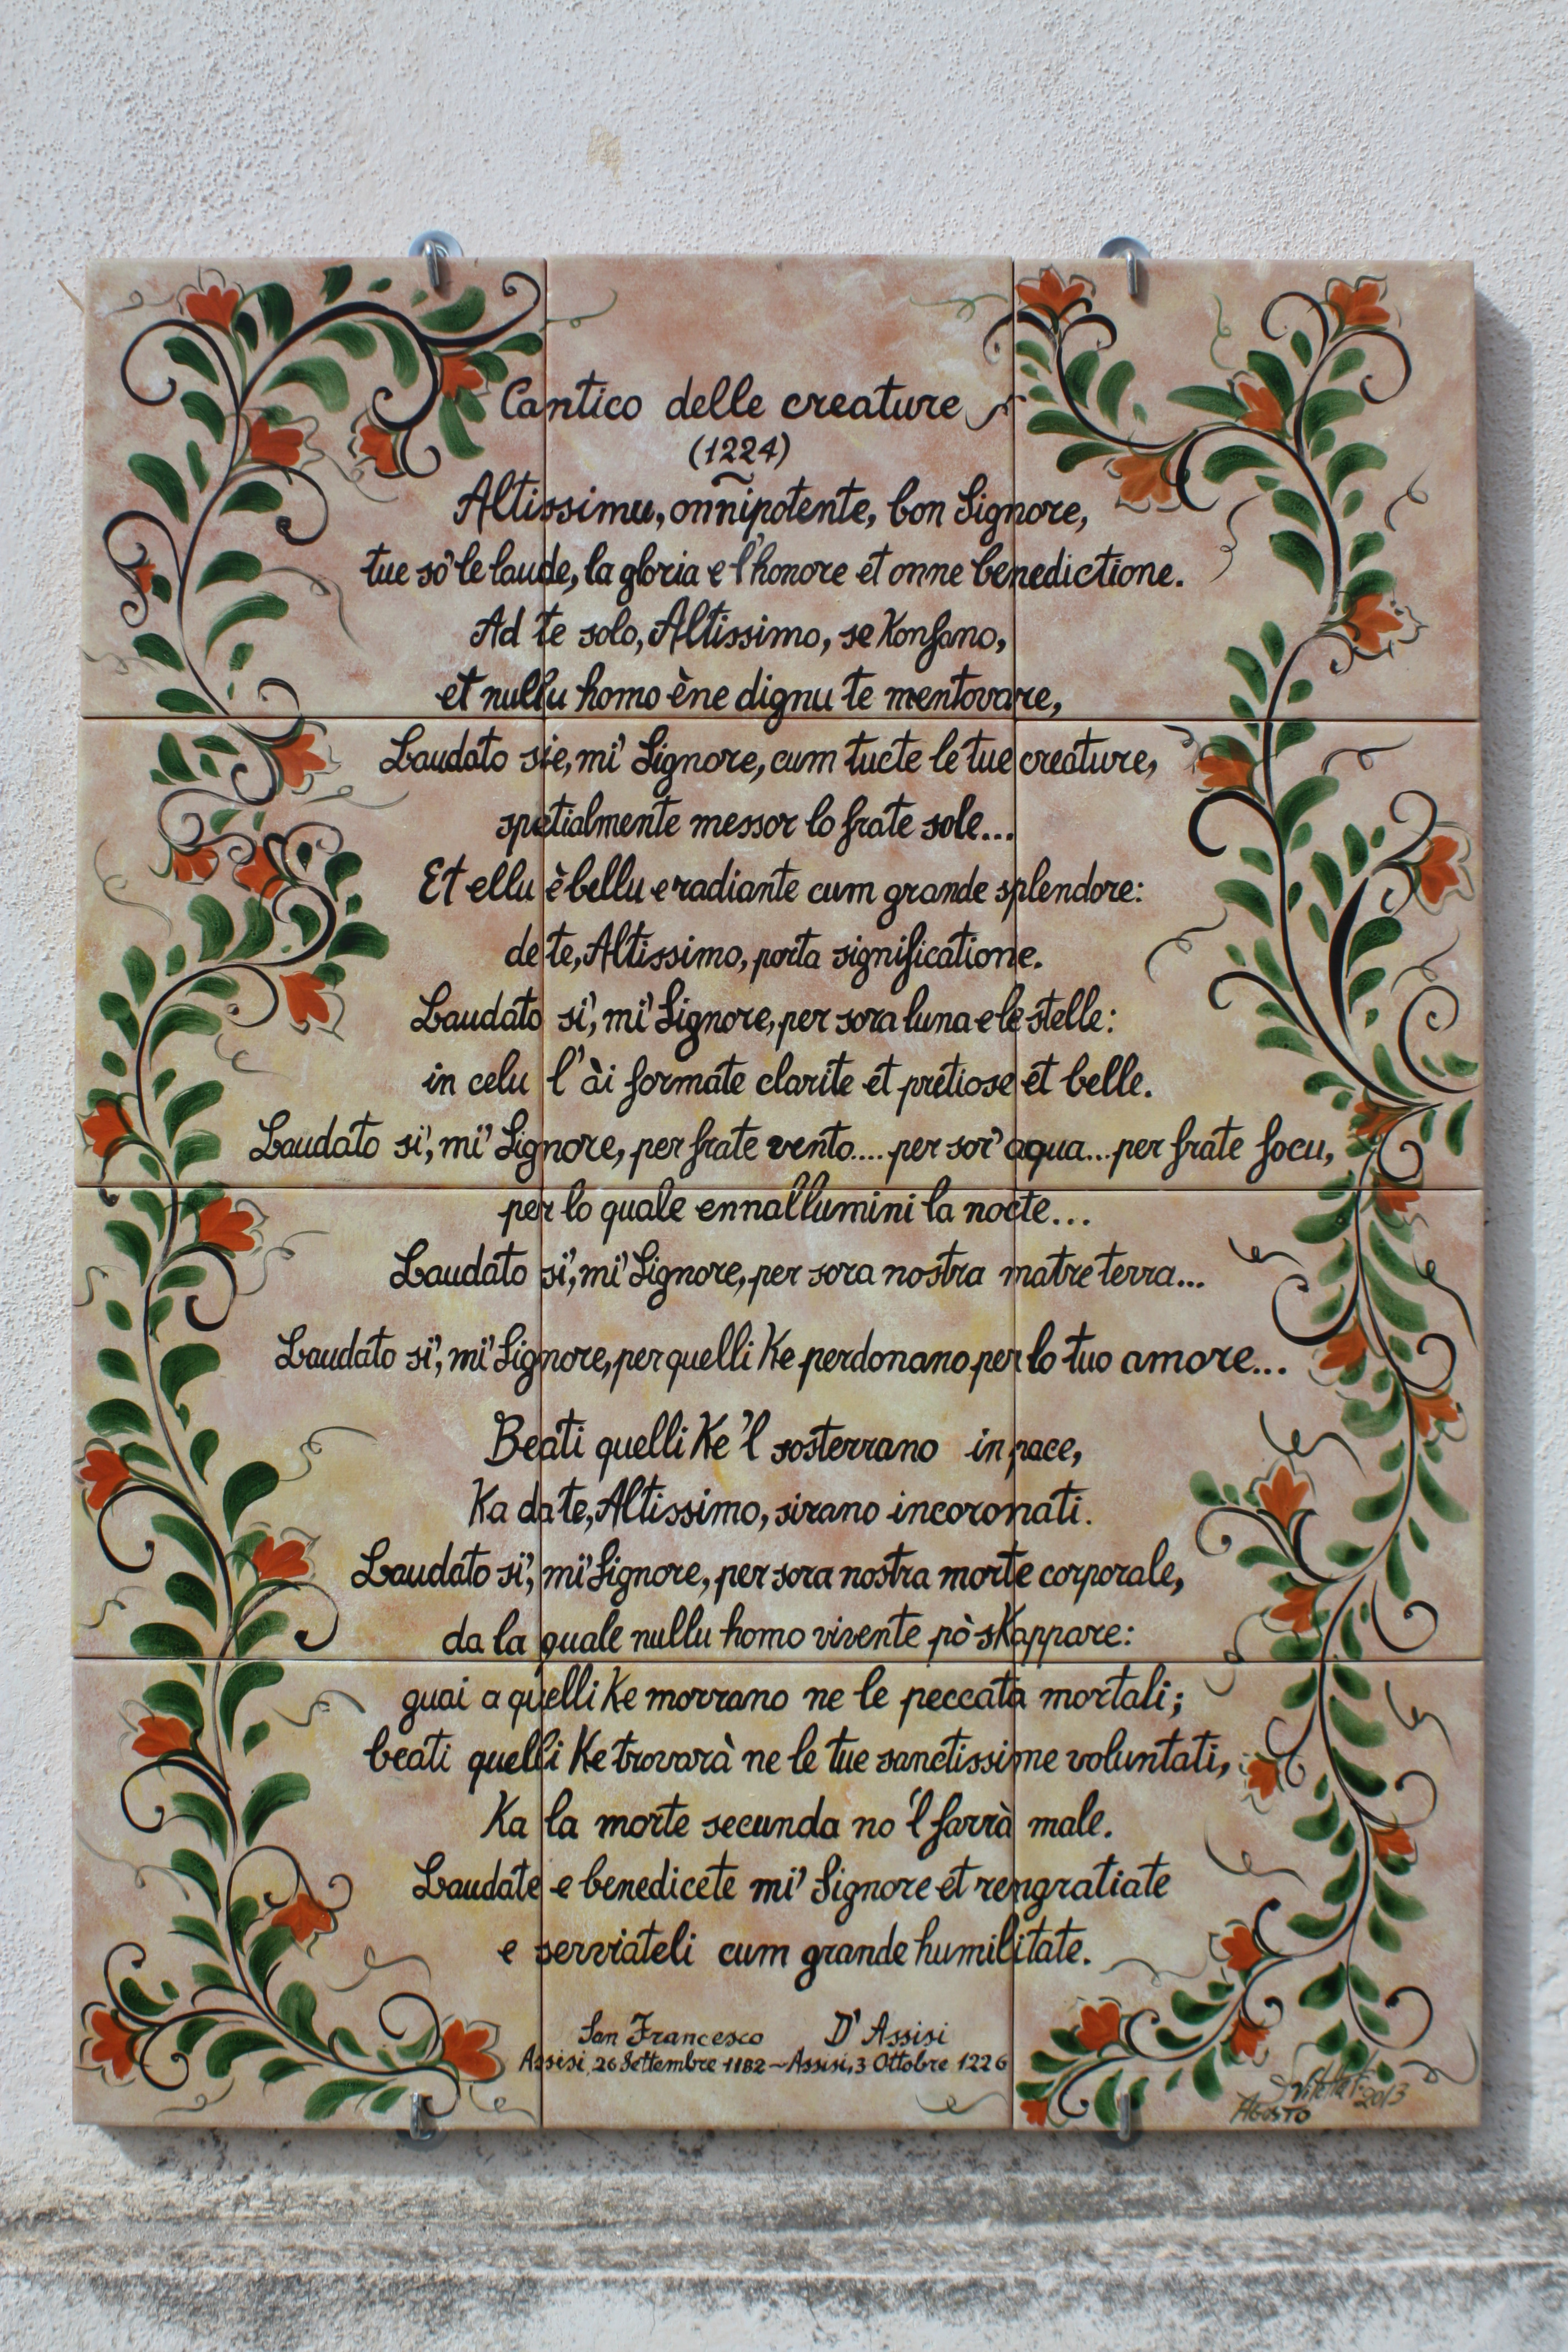 Cantico delle creature
(1224)
Altissimu, onnipotente, bon Signore,
tue so' le laude, la gloria e l'honore et onne benedictione.
Ad te solo, Altissimo, se Konfano,
et nullu homo ène dignu te mentovare,
Laudato sie, mi' Signore, cum tucte le tue creature,
spetialmente messor lo frate sole...
Et ellu è bellu e radiante cum grande splendore:
de te, Altissimo, porta significatione.
Laudato si', mi' Signore, per sora luna e le stelle:
in celu l'ài formate clarite et pretiose et belle.
Laudato si', mi' Signore, per frate vento.... per sor' aqua... per frate focu,
per lo quale ennallumini la nocte...
Laudato si', mi' Signore, per sora nostra matre terra...
Laudato si', mi' Signore, per quelli Ke perdonano per lo tuo amore...
Beati quelli Ke 'l sosterrano in pace,
Ka da te, Altissimo, sirano incoronati.
Laudato si', mi' Signore, per sora nostra morte corporale,
da la quale nullu homo vivente pò skappare:
guai a quelli Ke morrano ne le peccata mortali;
beati quelli Ke trovarà ne le tue sanctissime voluntati,
Ka la morte secunda no 'l farrà male.
Laudate e benedicete mi' Signore et rengratiate
e serviateli cum grande humilitate.
San Francesco D' Assisi
Assisi, 26 Settembre 1182 - Assisi, 3 Ottobre 1226
2013
Agosto